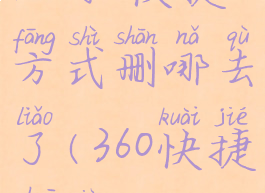 fāng shì shān nǎ qù
方式删哪去
liǎo kuài jié
了(360快捷